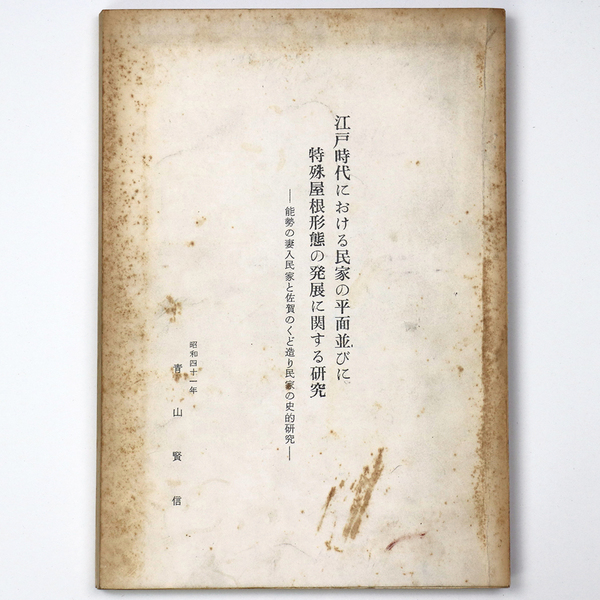 江戸時代における民家の平面並びに
特殊屋根形態の発展に関する研究
―能勢の妻入民家と佐賀のくど造り民家の史的研究―
昭和四十一年
青山賢信